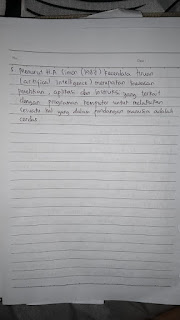 No.
Date
5. Menurut H.A Simon (1987) kecerdasan tiruan
(artifical Intelligence) merupakan kawasan
penelitian, aplikasi dan instruksi yang terkait
dengan programan komputer untuk melakukan
sesuatu hal yang dalam pandangan manusia adalah
cerdas.